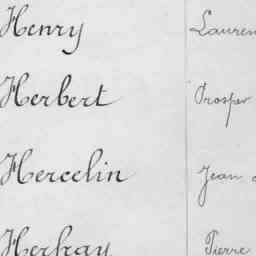 Henry Lauren
Herbert Prosper
Hercelin Jean
Herfray Pierre